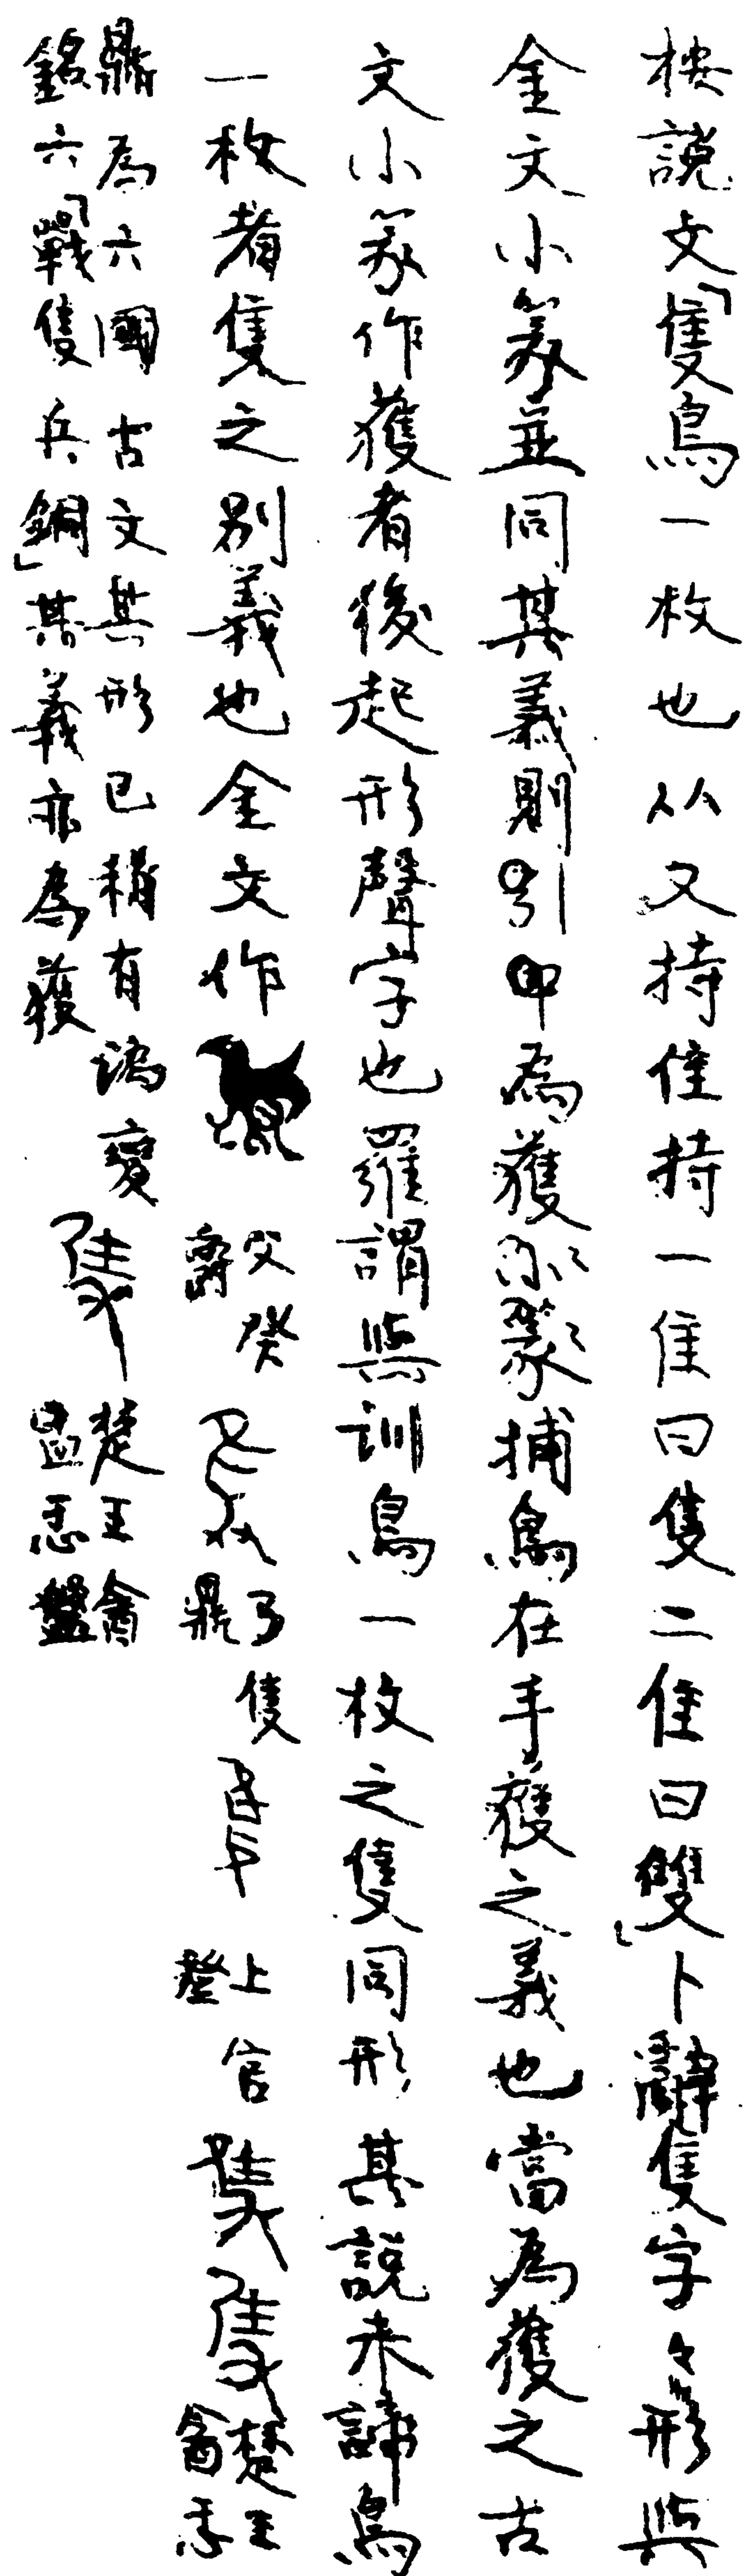 按說文「隻鳥一枚也从又持隹持一隹曰隻二隹曰雙」卜辭隻字々形與
金文小篆並同其義則引申為獲小篆捕鳥在手獲之義也當為獲之古
文小篆作獲者後起形聲字也羅謂與訓鳥一枚之隻同形其說未諦鳥
一枚者隻之別義也金文作 父癸爵 弓隻鼎 上官登 楚王禽忎
鼎為六國古文其形已稍有譌變 楚王禽
銘六「戰隻兵銅」其義亦為獲 忎盤